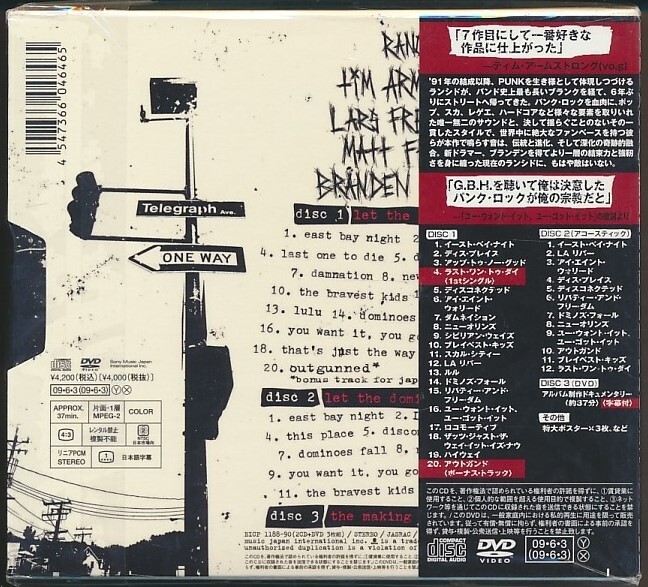 4 547366 046465
RAN
TIM ARM
LARS FRE
MATT F
BRANDEN
Telegraph Ave.
ONE WAY
disc 1 let the
1. east bay night 2
4. last one to die 5. d
7. damnation 8. new
10. the bravest kids
13. lulu 14. dominoes
16. you want it, you go
18. that's just the way
20. outgunned*
*bonus track for jap
disc 2 let the domi
1. east bay night 2. l
4. this place 5. disco
7. dominoes fall 8.
9. you want it, you go
11. the bravest kids
disc 3 the making
Sony Music Japan International Inc.
¥4,200(税込) [¥4,000(税抜)]
09・6・3 (09・6・3) Ⓨ Ⓧ
APPROX. 37min.
片面・1層 MPEG-2
COLOR
4:3
レンタル禁止
複製不能
NTSC
日本市場向
リニアPCM
STEREO
1
日本語字幕
EICP 1188-90(2CD+DVD 3枚組) / STEREO / JASRAC /
music japan international inc. is a trade
unauthorized duplication is a violation of
「7作目にして一番好きな
作品に仕上がった」
―ティム・アームストロング(vo,g)
'91年の結成以降、PUNKを生き様として体現しつづける
ランシドが、バンド史上最も長いブランクを経て、6年ぶ
りにストリートへ帰ってきた。パンク・ロックを血肉に、ポッ
プ、スカ、レゲエ、ハードコアなど様々な要素を取りいれ
た唯一無二のサウンドと、決して揺らぐことのないその一
貫したスタイルで、世界中に絶大なファンベースを持つ彼
らが本作で鳴らす音は、伝統と進化、そして深化の奇跡的融
合。新ドラマー、ブランデンを得てより一層の結束力と強靭
さを身に纏った現在のランシドに、もはや敵はいない。
「G.B.H.を聴いて俺は決意した
パンク・ロックが俺の宗教だと」
―「ユー・ウォント・イット、ユー・ゴット・イット」の歌詞より
DISC 1
1. イースト・ベイ・ナイト
2. ディス・プレイス
3. アップ・トゥ・ノー・グッド
4. ラスト・ワン・トゥ・ダイ
(1stシングル)
5. ディスコネクテッド
6. アイ・エイント・
ウォリード
7. ダムネイション
8. ニューオリンズ
9. シビリアン・ウェイズ
10. ブレイベスト・キッズ
11. スカル・シティー
12. LA リバー
13. ルル
14. ドミノズ・フォール
15. リバティー・アンド・
フリーダム
16. ユー・ウォント・イット、
ユー・ゴット・イット
17. ロコモーティブ
18. ザッツ・ジャスト・ザ・
ウェイ・イット・イズ・ナウ
19. ハイウェイ
20. アウトガンド
(ボーナス・トラック)
DISC 2 (アコースティック)
1. イースト・ベイ・ナイト
2. LA リバー
3. アイ・エイント・
ウォリード
4. ディス・プレイス
5. ディスコネクテッド
6. リバティー・アンド・
フリーダム
7. ドミノズ・フォール
8. ニューオリンズ
9. ユー・ウォント・イット、
ユー・ゴット・イット
10. アウトガンド
11. ブレイベスト・キッズ
12. ラスト・ワン・トゥ・ダイ
DISC 3 (DVD)
アルバム制作ドキュメンタリー
(約37分) (字幕付)
その他
特大ポスター×3枚、など
COMPACT disc DIGITAL AUDIO
DVD VIDEO
09・6・3 Ⓨ
(09・6・3) Ⓧ